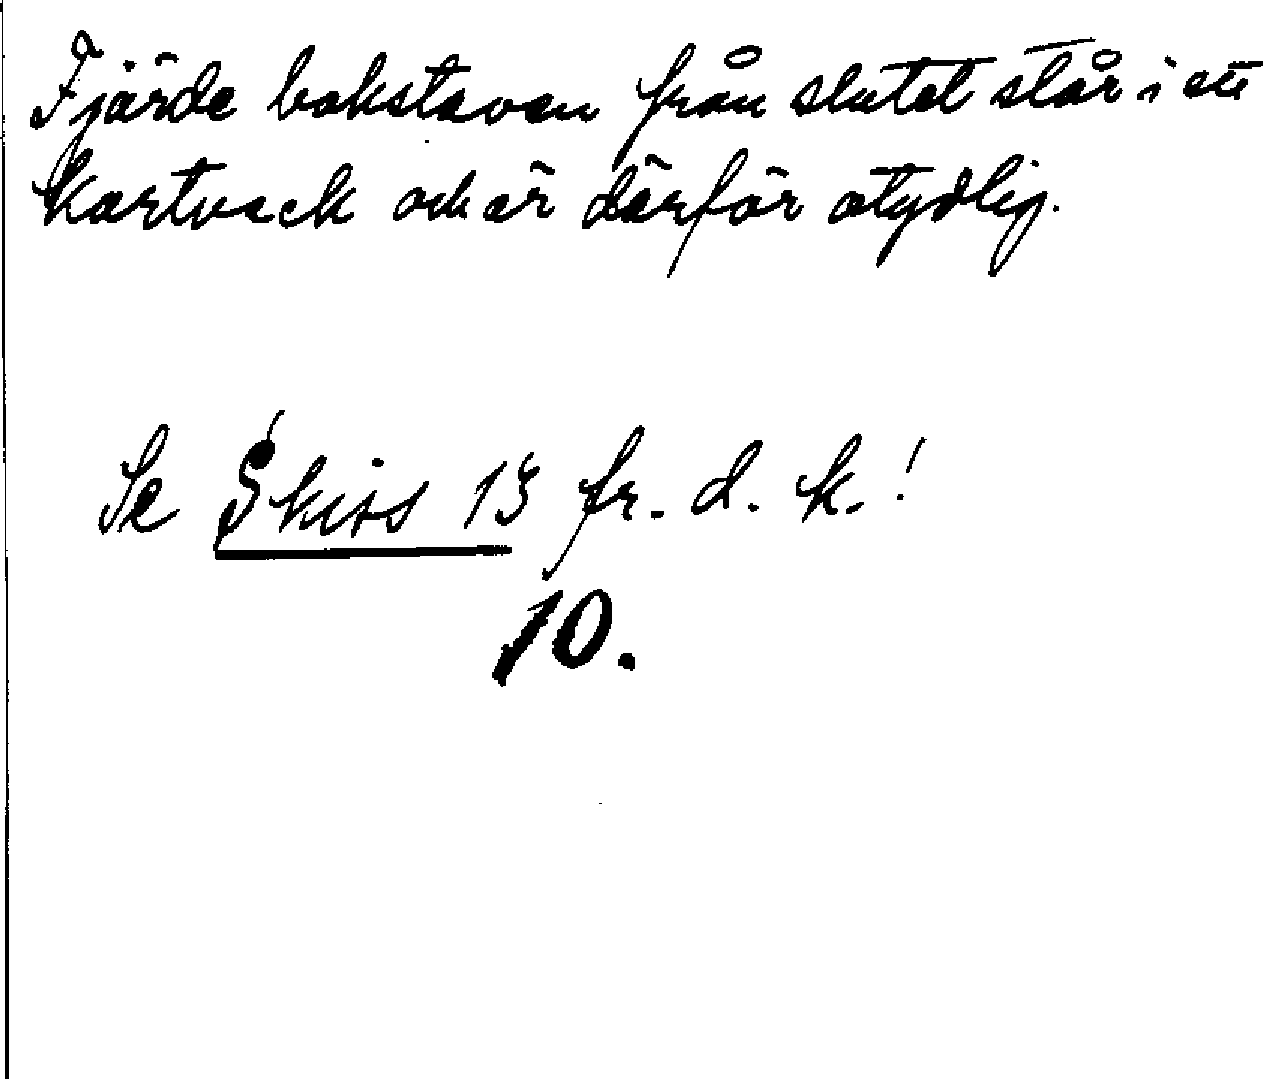 Fjärde bokstaven från slutet står i ett
kartveck och är därför otydlig.
Se Skiss 13 fr. d. k.!
10.